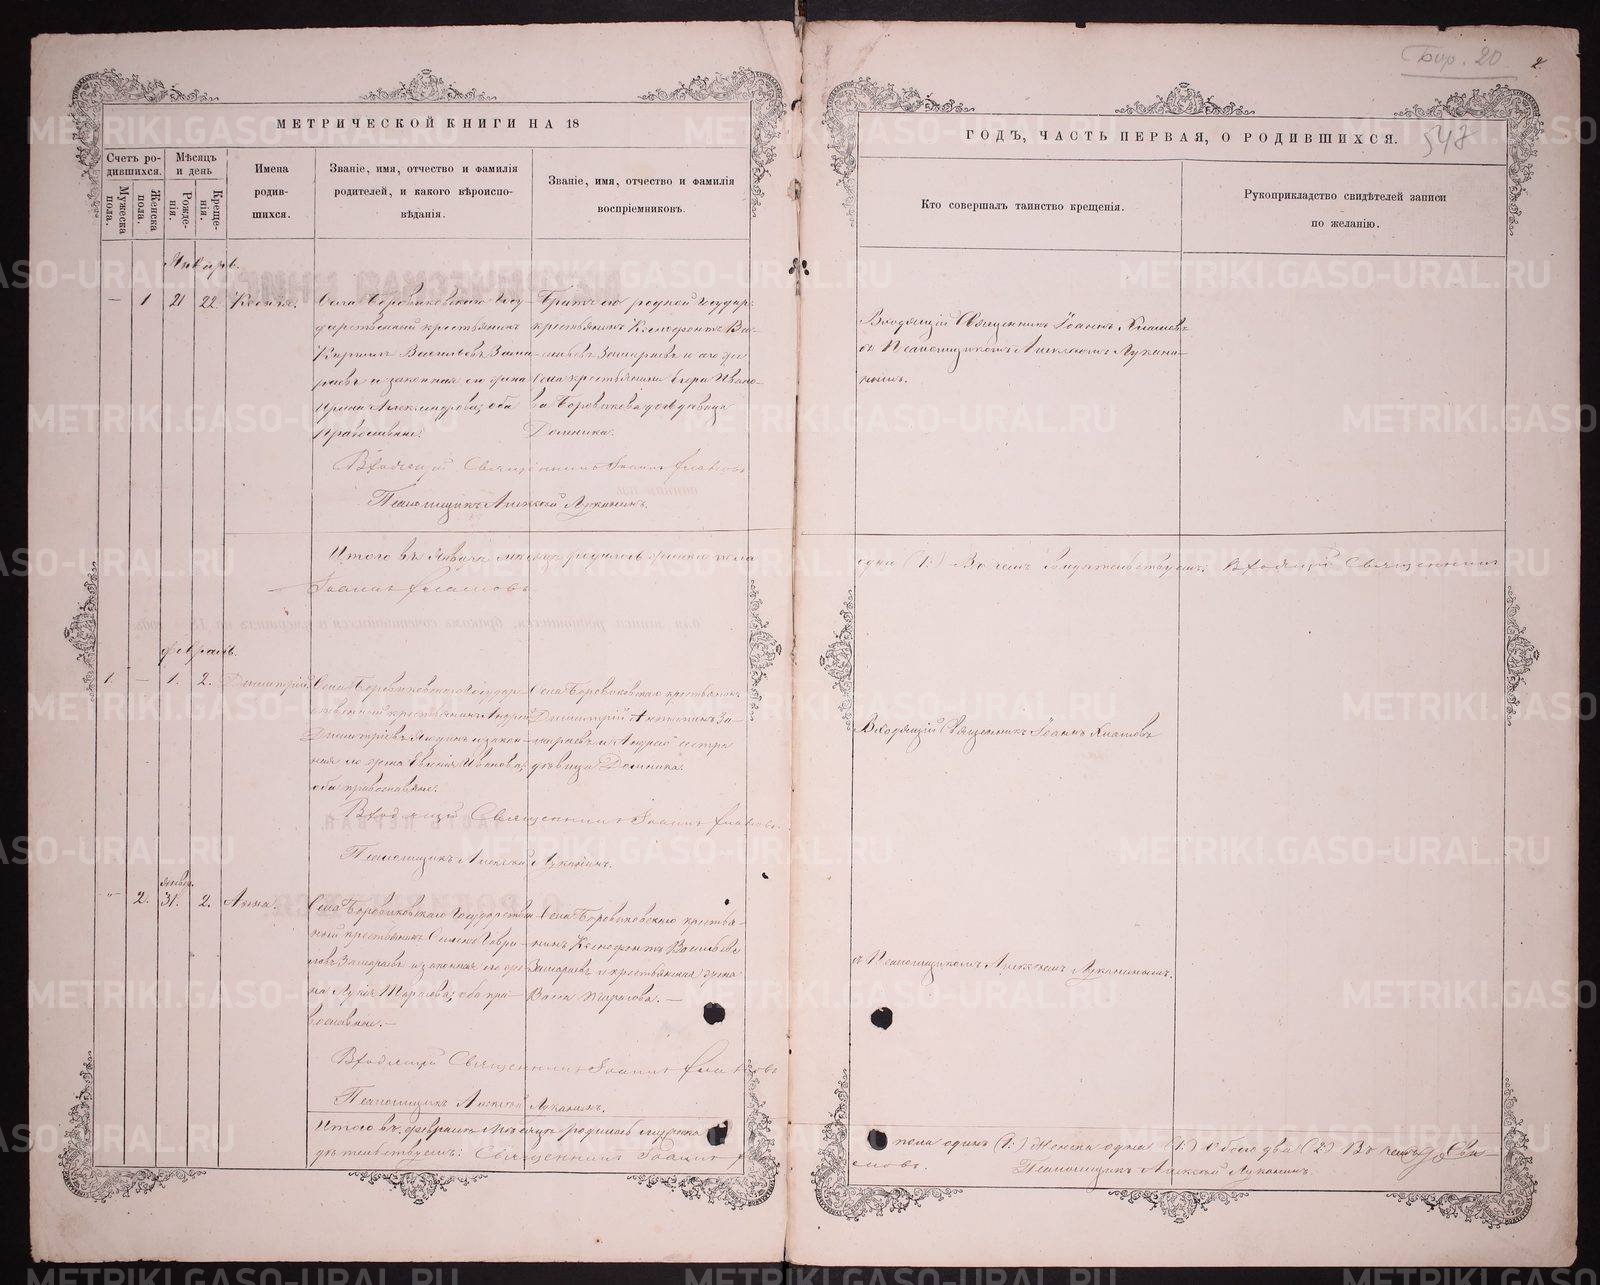 Бир. 20
2
547
МЕТРИЧЕСКОЙ КНИГИ НА 18
ГОДЪ, ЧАСТЬ ПЕРВАЯ, О РОДИВШИХСЯ.
Счетъ ро-
дившихся.
Мужеска
пола.
Женска
пола.
Мѣсяцъ
и день
Рожде-
нія.
Креще-
нія.
Имена
родив-
шихся.
Званіе, имя, отчество и фамилія
родителей, и какого вѣроиспо-
вѣданія.
Званіе, имя, отчество и фамилія
воспріемниковъ.
Кто совершалъ таинство крещенія.
Рукоприкладство свидѣтелей записи
по желанію.
Январь.
— 1 21 22. Ксенія.
Села Боровиковскаго Госу-
дарственный крестьянинъ
Кириллъ Васильевъ Зама-
раевъ и законная его жена
Ирина Александрова; оба
православные.
Братъ его родной Государ.
крестьянинъ Ксенофонтъ Ва-
сильевъ Замараевъ и того же
Села крестьянина Егора Ивано-
ва Боровикова дочь девица
Домника.
Входящій Священникъ Іоаннъ
съ Псаломщикомъ Алексѣемъ Лукани-
нымъ.
Входящій Священникъ Іоаннъ
Псаломщикъ Алексѣй Луканинъ.
Итого въ Январѣ мѣсяцѣ родилось женска пола
одна (1.) Въ чемъ и свидѣтельствуемъ: Входящій Священникъ
Іоаннъ
Февраль.
1. — 1. 2. Димитрій.
Села Боровиковскаго Государ-
ственный крестьянинъ Андрей
Димитріевъ и закон-
ная его жена Евгенія Иванова;
оба православные.
Села Боровиковскаго крестьянинъ
Димитрій За-
мараевъ и Андрея сестра
девица Домника.
Входящій Священникъ Іоаннъ
Входящій Священникъ Іоаннъ
Псаломщикъ Алексѣй Луканинъ.
Январ.
" 2. 31. 2. Анна.
Села Боровиковскаго Государствен-
ный крестьянинъ Семенъ Гаври-
ловъ Замараевъ и законная его же-
на оба пра-
вославные. —
Села Боровиковскаго крестья-
нинъ Ксенофонтъ Васильевъ
Замараевъ и крестьянская жена
Васса —
съ Псаломщикомъ Алексѣемъ Луканинымъ.
Входящій Священникъ Іоаннъ
Псаломщикъ Алексѣй Луканинъ.
Итого въ Февралѣ мѣсяцѣ родилось мужска
пола одинъ (1.) Женска одна (1.) Обоего два (2.) Въ чемъ и сви-
дѣтельствуемъ: Священникъ Іоаннъ
Псаломщикъ Алексѣй Луканинъ.
METRIKI.GASO-URAL.RU